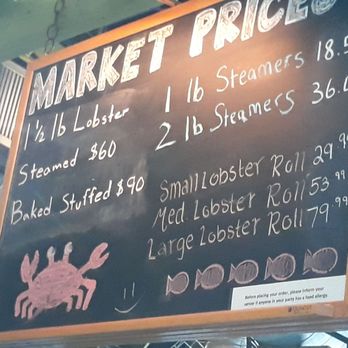 MARKET PRICES
1 ½ lb Lobster
Steamed $60
Baked Stuffed $90
1 lb Steamers 18.5
2 lb Steamers 36.
Small Lobster Roll 29.99
Med. Lobster Roll 53 99
Large Lobster Roll 79 99
Before placing your order, please inform your
server if anyone in your party has a food allergy.